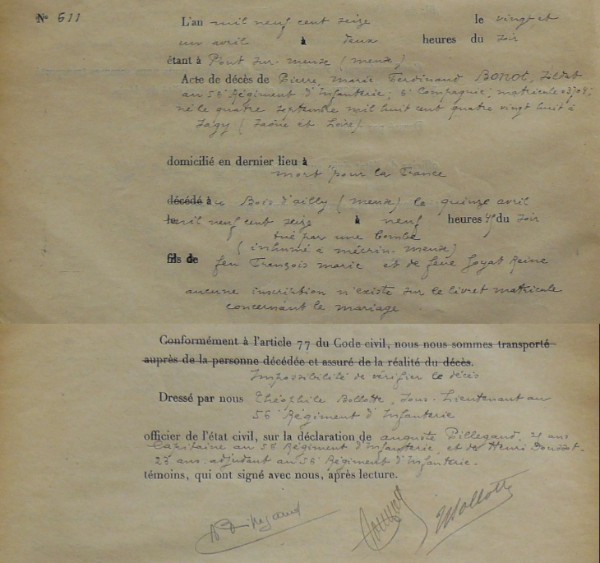 N° 511
L'an mil neuf cent seize le vingt et
un avril à deux heures du soir
étant à Pont sur meuse (meuse)
Acte de décès de Pierre, Marie Ferdinand BONOT, soldat
au 56e Régiment d'Infanterie, 6e Compagnie, matricule
né le quatre septembre mil huit cent quatre vingt huit à
Sagy (Saône et Loire)
domicilié en dernier lieu à
mort pour la France
décédé à au Bois d'ailly (meuse) le quinze avril
le mil neuf cent seize à neuf heures du soir
tué par une bombe
(inhumé à mécrin meuse)
fils de feu François marie et de feue Goyat Reine
aucune inscription n'existe sur le livret matricule
concernant le mariage
Conformément à l'article 77 du Code civil, nous nous sommes transporté
auprès de la personne décédée et assuré de la réalité du décès.
Impossibilité de vérifier le décès
Dressé par nous Théophile Bollotte, Sous-Lieutenant au
56e Régiment d'Infanterie
officier de l'état civil, sur la déclaration de auguste Pillegand, ans
Capitaine au 56e Régiment d'Infanterie, et de Henri
27 ans, adjudant au 56e Régiment d'Infanterie.
témoins, qui ont signé avec nous, après lecture.